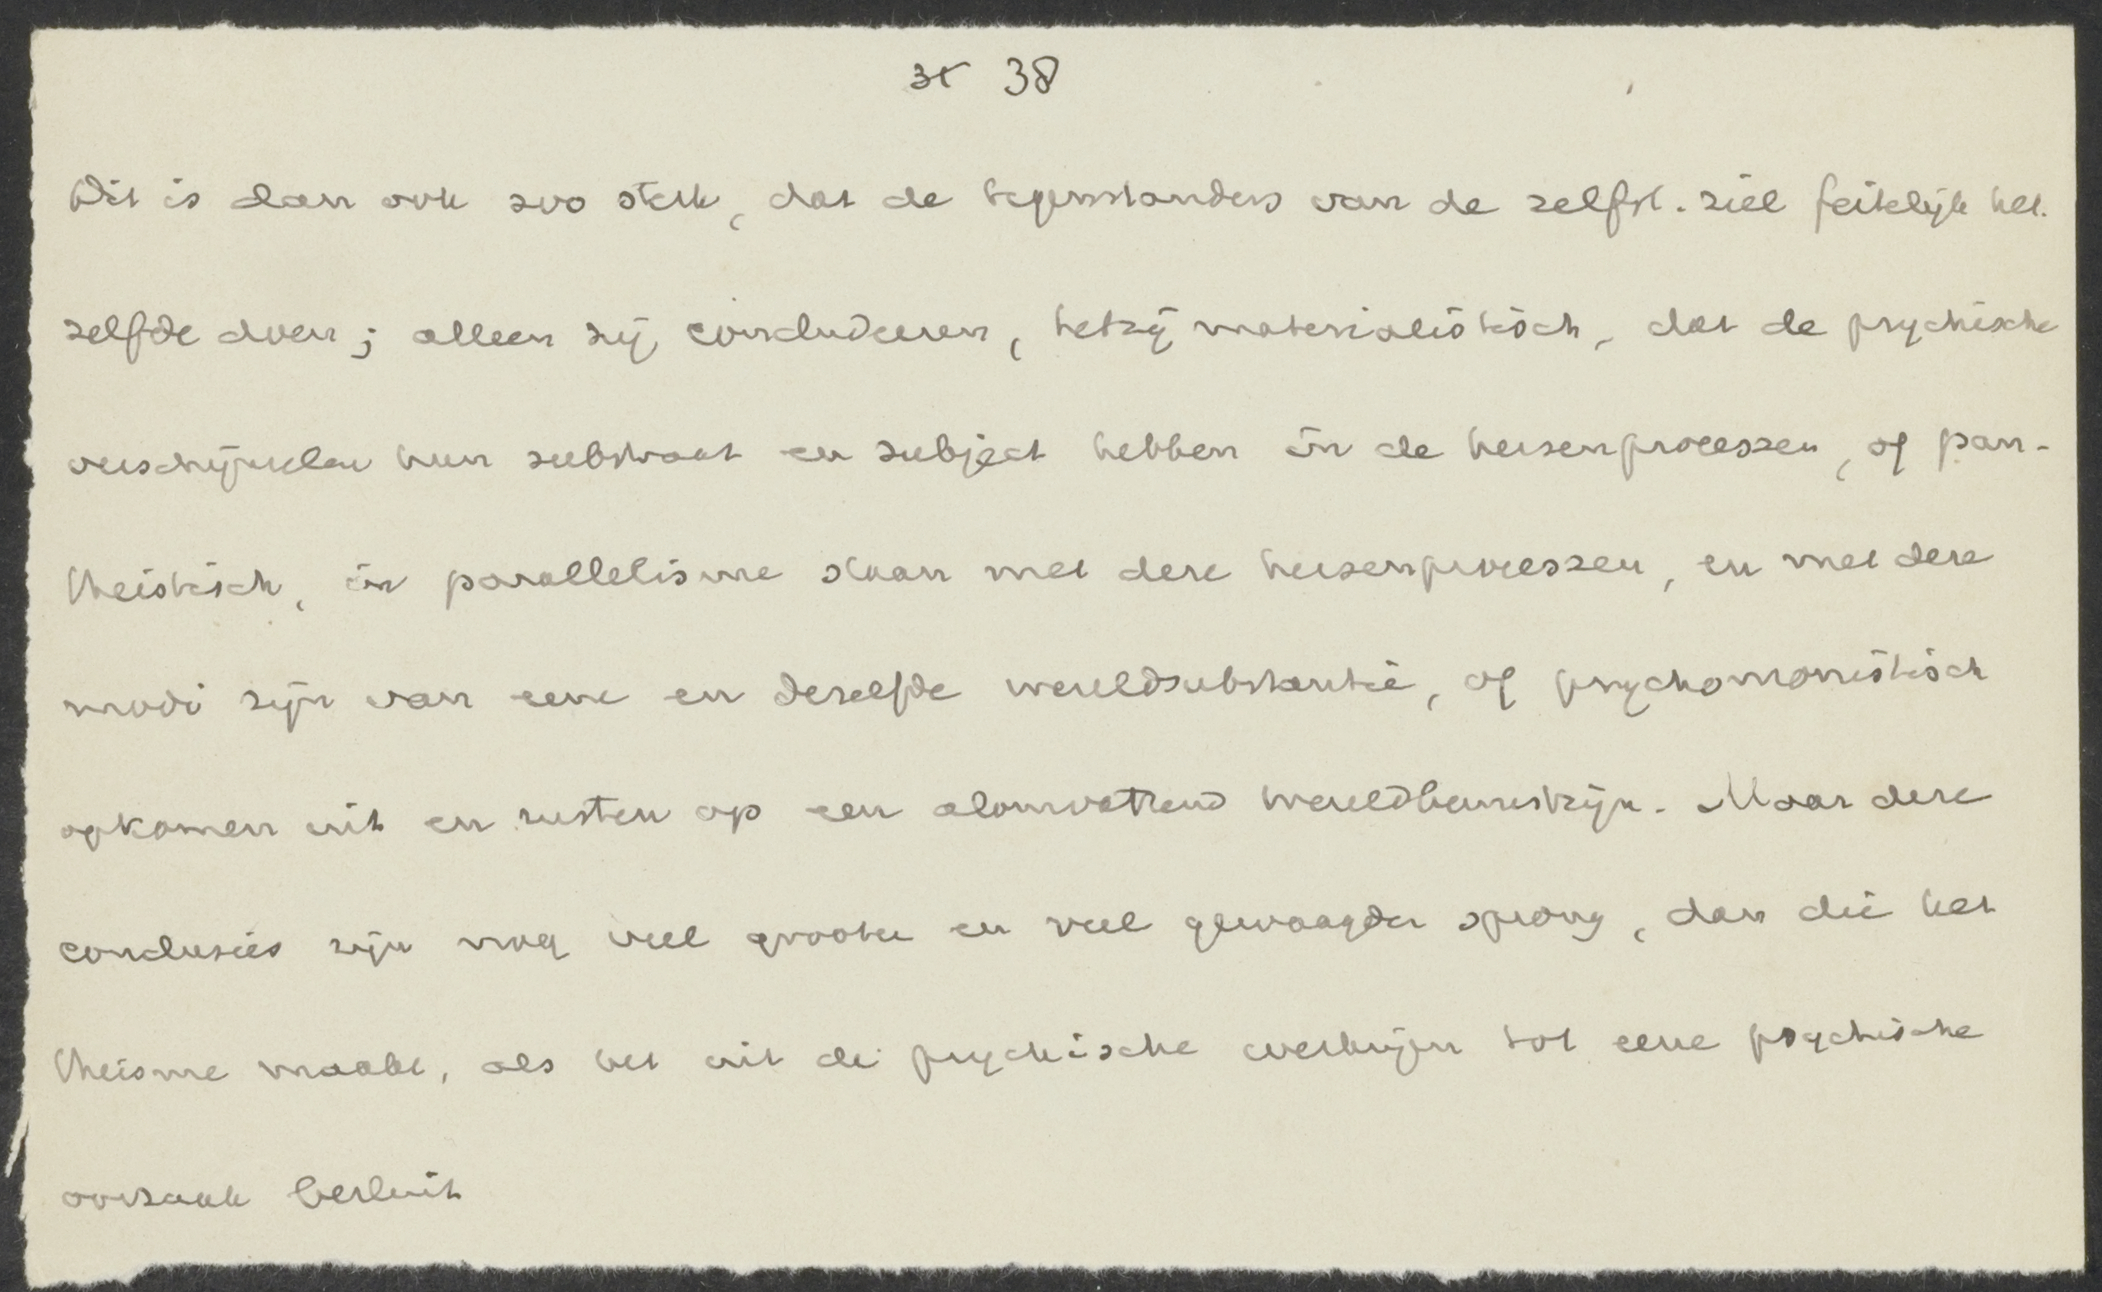 38
Dit is dan ook zoo sterk, dat de tegenstanders van de zelfst. ziel feitelijk het.
zelfde doen; alleen zij concludeeren, hetzij materialistisch, dat de psychische
verschijnselen hun substraat en subject hebben in de hersenprocessen, of pan-
theistisch, in parallelisme staan met deze hersenprocessen, en met deze
modi zijn van eene en dezelfde wereldsubstantie, of psychomonistisch
opkomen uit en rusten op een alomvattend wereldbewustzijn. Maar deze
conclusies zijn nog veel grooter en veel gewaagder sprong, dan die het
theisme maakt, als het uit de psychische werkingen tot eene psychische
oorzaak besluit